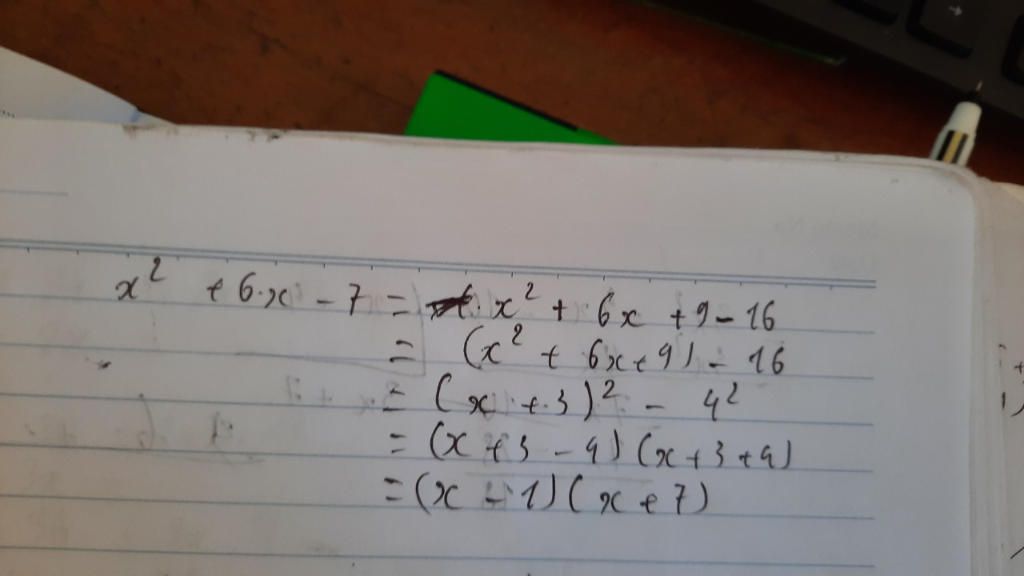 x² + 6·x - 7 = x² + 6x + 9 - 16
= (x² + 6x + 9) - 16
= (x + 3)² - 4²
= (x + 3 - 4) (x + 3 + 4)
= (x - 1) (x + 7)